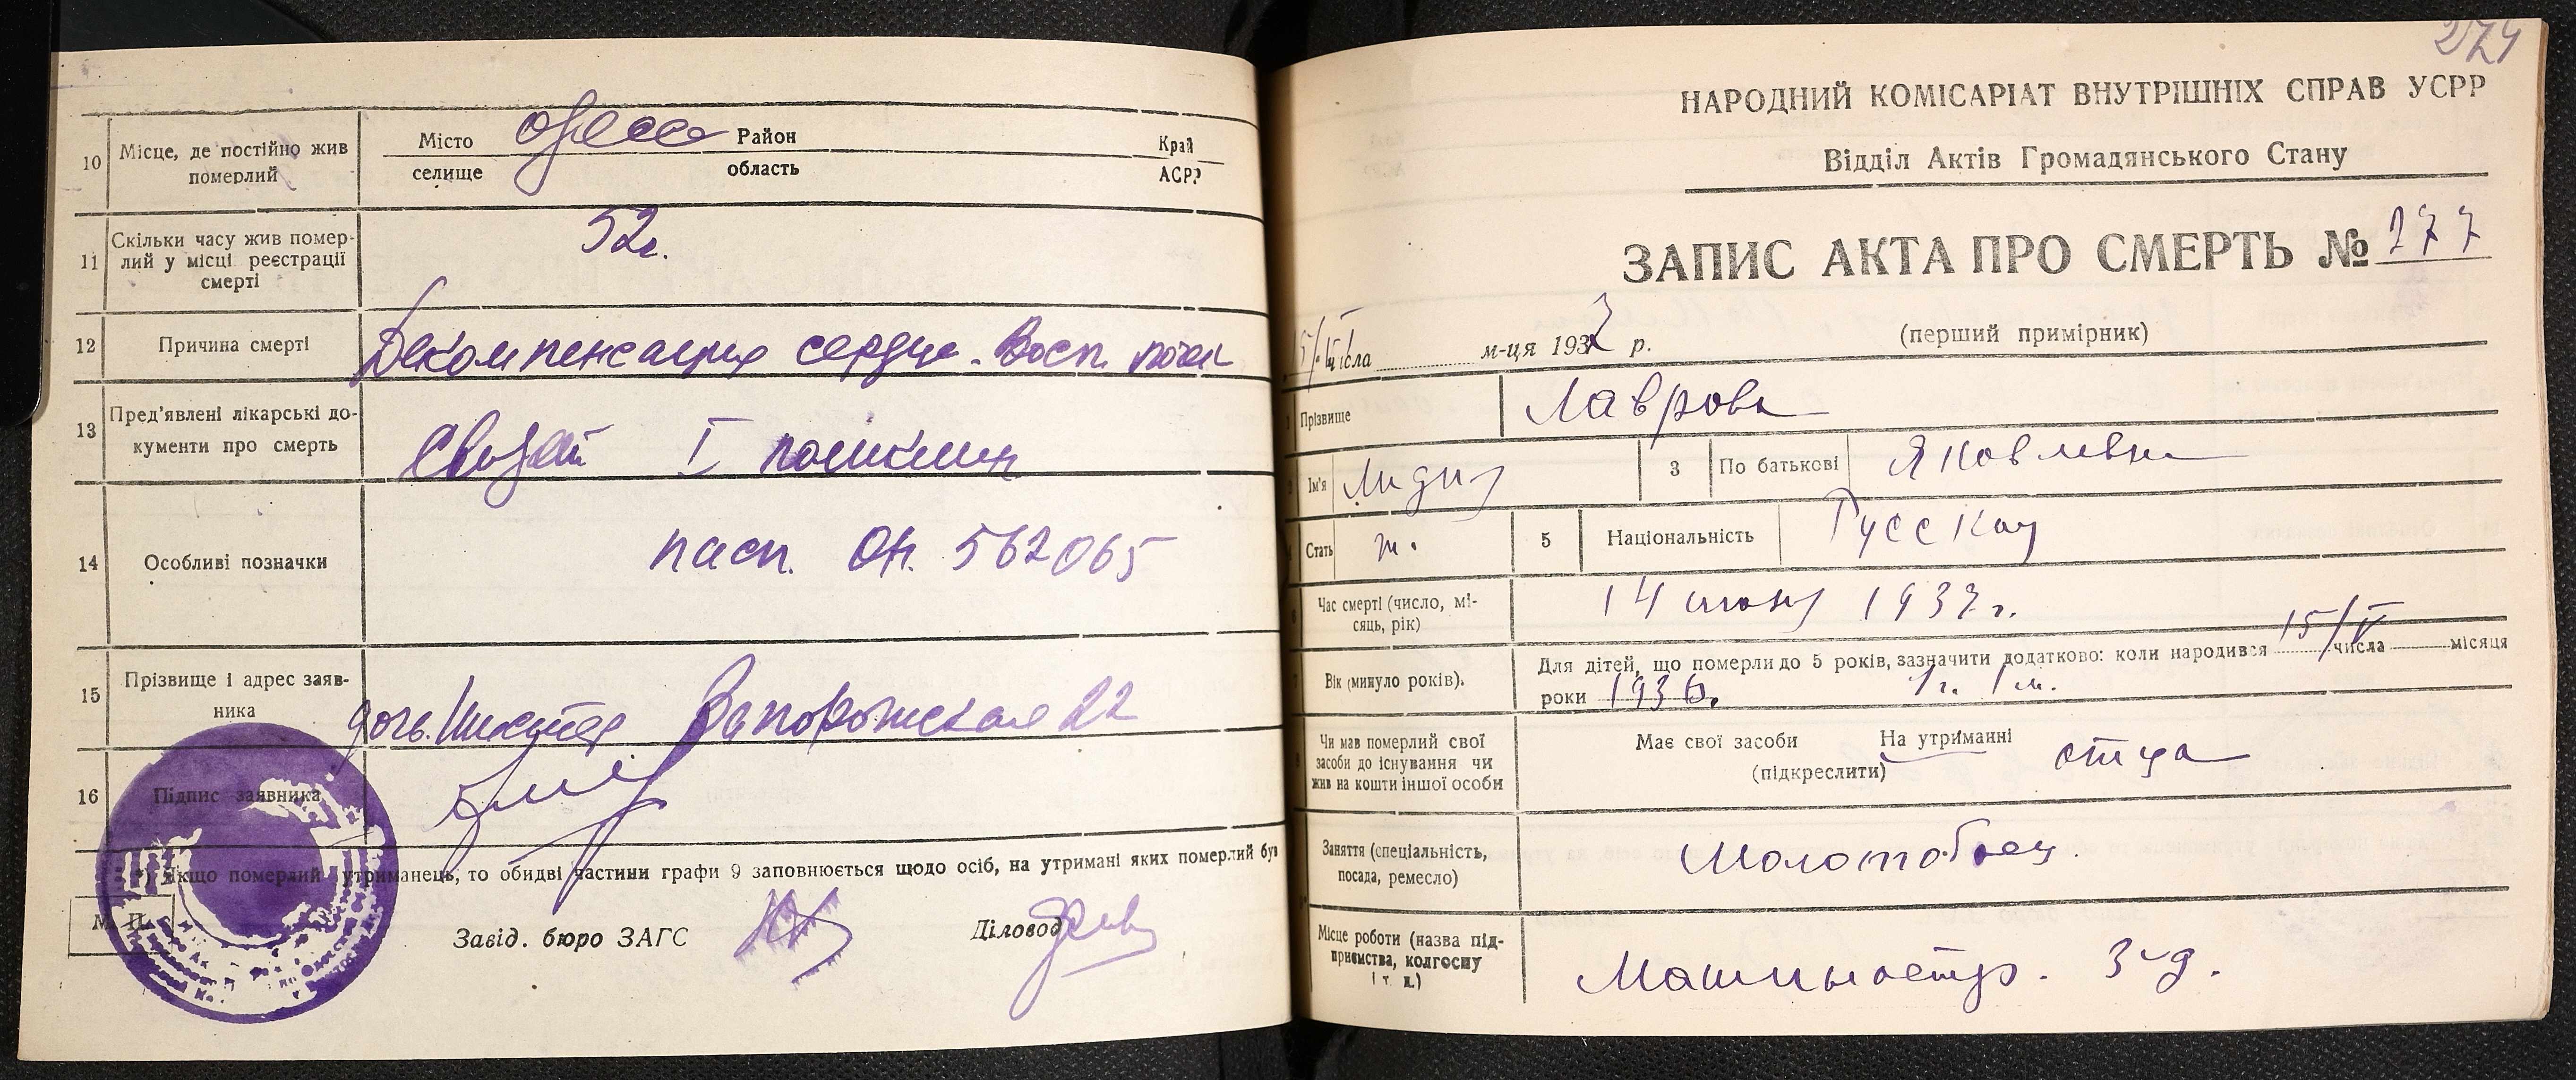 10 Місце, де постійно жив померлий
Місто Одесса Район Край
селище область АСРР
11 Скільки часу жив помер-
лий у місці реєстрації
смерті
52г.
12 Причина смерті
Декомпенсация сердца. Восп. почек
13 Пред'явлені лікарські до-
кументи про смерть
I поликлин
14 Особливі позначки
пасп. ОЛ. 562065
15 Прізвище і адрес заяв-
ника
дочь. Запорожская 22
16 Підпис заявника
*) Якщо померлий утриманець, то обидві частини графи 9 заповнюється щодо осіб, на утримані яких померлий був
М. П.
Завід. бюро ЗАГС
Діловод
274
НАРОДНИЙ КОМІСАРІАТ ВНУТРІШНІХ СПРАВ УСРР
Відділ Актів Громадянського Стану
ЗАПИС АКТА ПРО СМЕРТЬ № 277
(перший примірник)
числа м-ця 1937 р.
Прізвище Лаврова
Ім'я Лидия 3 По батькові Яковлевна
Стать ж. 5 Національність Русская
Час смерті (число, мі-
сяць, рік)
14 июня 1937 г.
Вік (минуло років).
Для дітей, що померли до 5 років, зазначити додатково: коли народився 15/V числа місяця
роки 1936. 1 г. 1 м.
Чи мав померлий свої
засоби до існування чи
жив на кошти іншої особи
Має свої засоби На утриманні отца
(підкреслити)
Заняття (спеціальність,
посада, ремесло)
Молотобоец
Місце роботи (назва під-
приємства, колгоспу
і т. д.)
Машиностр. з-д.